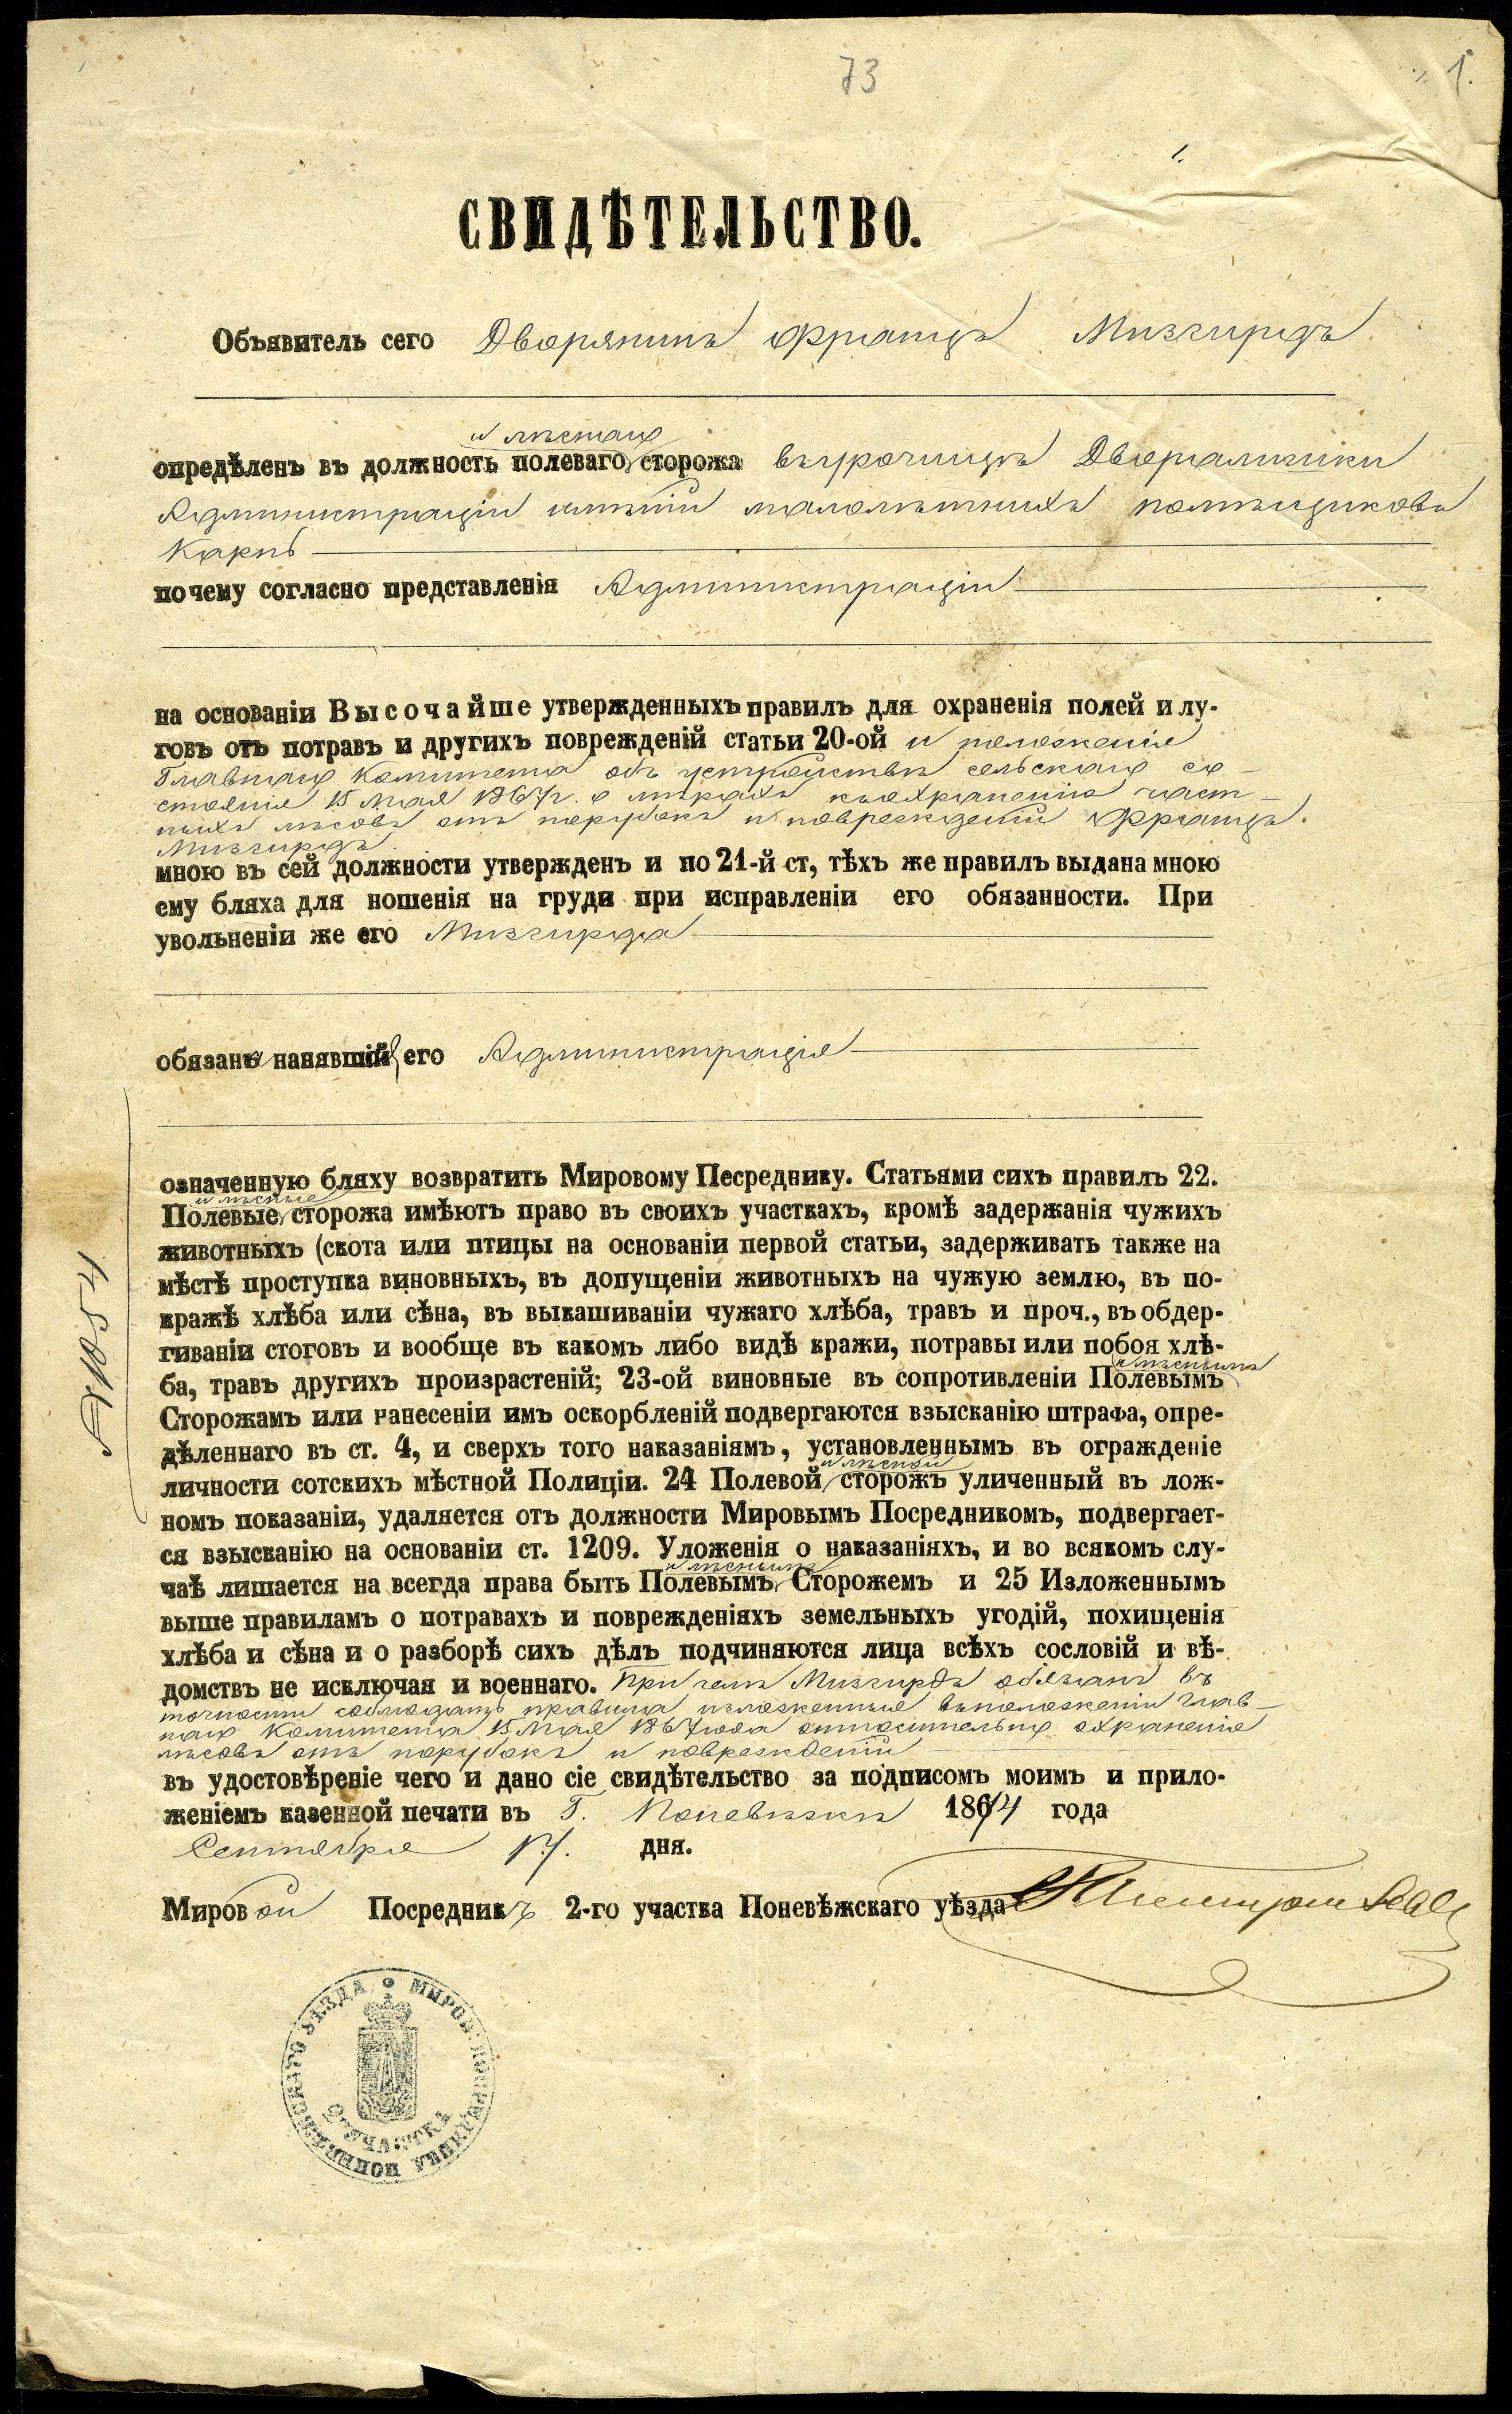 73
1.
1.
СВИДѢТЕЛЬСТВО.
Объявитель сего Дворянинъ Францъ Мизгирдъ
и лѣснаго
опредѣленъ въ должность полеваго сторожа въ урочищѣ Дворалишки
Администраціи имѣній малолѣтнихъ помѣщиковъ
Карпь
почему согласно представленія Администраціи
на основаніи Высочайше утвержденныхъ правилъ для охраненія полей и лу-
говъ отъ потравъ и другихъ поврежденій статьи 20-ой и положенія
Главнаго Комитета объ устройствѣ сельскаго со-
стоянія 15 Мая 1867г. о мѣрахъ къ охраненію част-
ныхъ лѣсовъ отъ порубокъ и поврежденій Францъ
Мизгирдъ
мною въ сей должности утвержденъ и по 21-й ст, тѣхъ же правилъ выдана мною
ему бляха для ношенія на груди при исправленіи его обязанности. При
увольненіи же его Мизгирда
обязана нанявшая его Администрація
означенную бляху возвратить Мировому Песреднику. Статьями сихъ правилъ 22.
и лѣсные
Полевые сторожа имѣютъ право въ своихъ участкахъ, кромѣ задержанія чужихъ
животныхъ (скота или птицы на основаніи первой статьи, задерживать также на
мѣстѣ проступка виновныхъ, въ допущеніи животныхъ на чужую землю, въ по-
кражѣ хлѣба или сѣна, въ выкашиваніи чужаго хлѣба, травъ и проч., въ обдер-
гиваніи стоговъ и вообще въ какомъ либо видѣ кражи, потравы или побоя хлѣ-
и лѣснымъ
ба, травъ другихъ произрастеній; 23-ой виновные въ сопротивленіи Полевымъ
Сторожамъ или нанесеніи имъ оскорбленій подвергаются взысканію штрафа, опре-
дѣленнаго въ ст. 4, и сверхъ того наказаніямъ, установленнымъ въ огражденіе
и лѣсной
личности сотскихъ мѣстной Полиціи. 24 Полевой сторожъ уличенный въ лож-
номъ показаніи, удаляется отъ должности Мировымъ Посредникомъ, подвергает-
ся взысканію на основаніи ст. 1209. Уложенія о наказаніяхъ, и во всякомъ слу-
и лѣснымъ
чаѣ лишается на всегда права быть Полевымъ Сторожемъ и 25 Изложеннымъ
выше правиламъ о потравахъ и поврежденіяхъ земельныхъ угодій, похищенія
хлѣба и сѣна и о разборѣ сихъ дѣлъ подчиняются лица всѣхъ сословій и вѣ-
домствъ не исключая и военнаго. При чемъ Мизгирдъ обязанъ въ
точности соблюдать правила изложенныя въ положеніи Глав-
наго Комитета 15 Мая 1867 года относительно охраненія
лѣсовъ отъ порубокъ и поврежденій
въ удостовѣреніе чего и дано сіе свидѣтельство за подписомъ моимъ и прило-
женіемъ казенной печати въ Г. Поневѣжѣ 1874 года
Сентября 17. дня.
Мировой Посредникъ 2-го участка Поневѣжскаго уѣзда
№ 1054
МИРОВ. ПОСРЕДНИКА ПОНЕВѢЖСКАГО УѢЗДА
2 УЧАСТКА